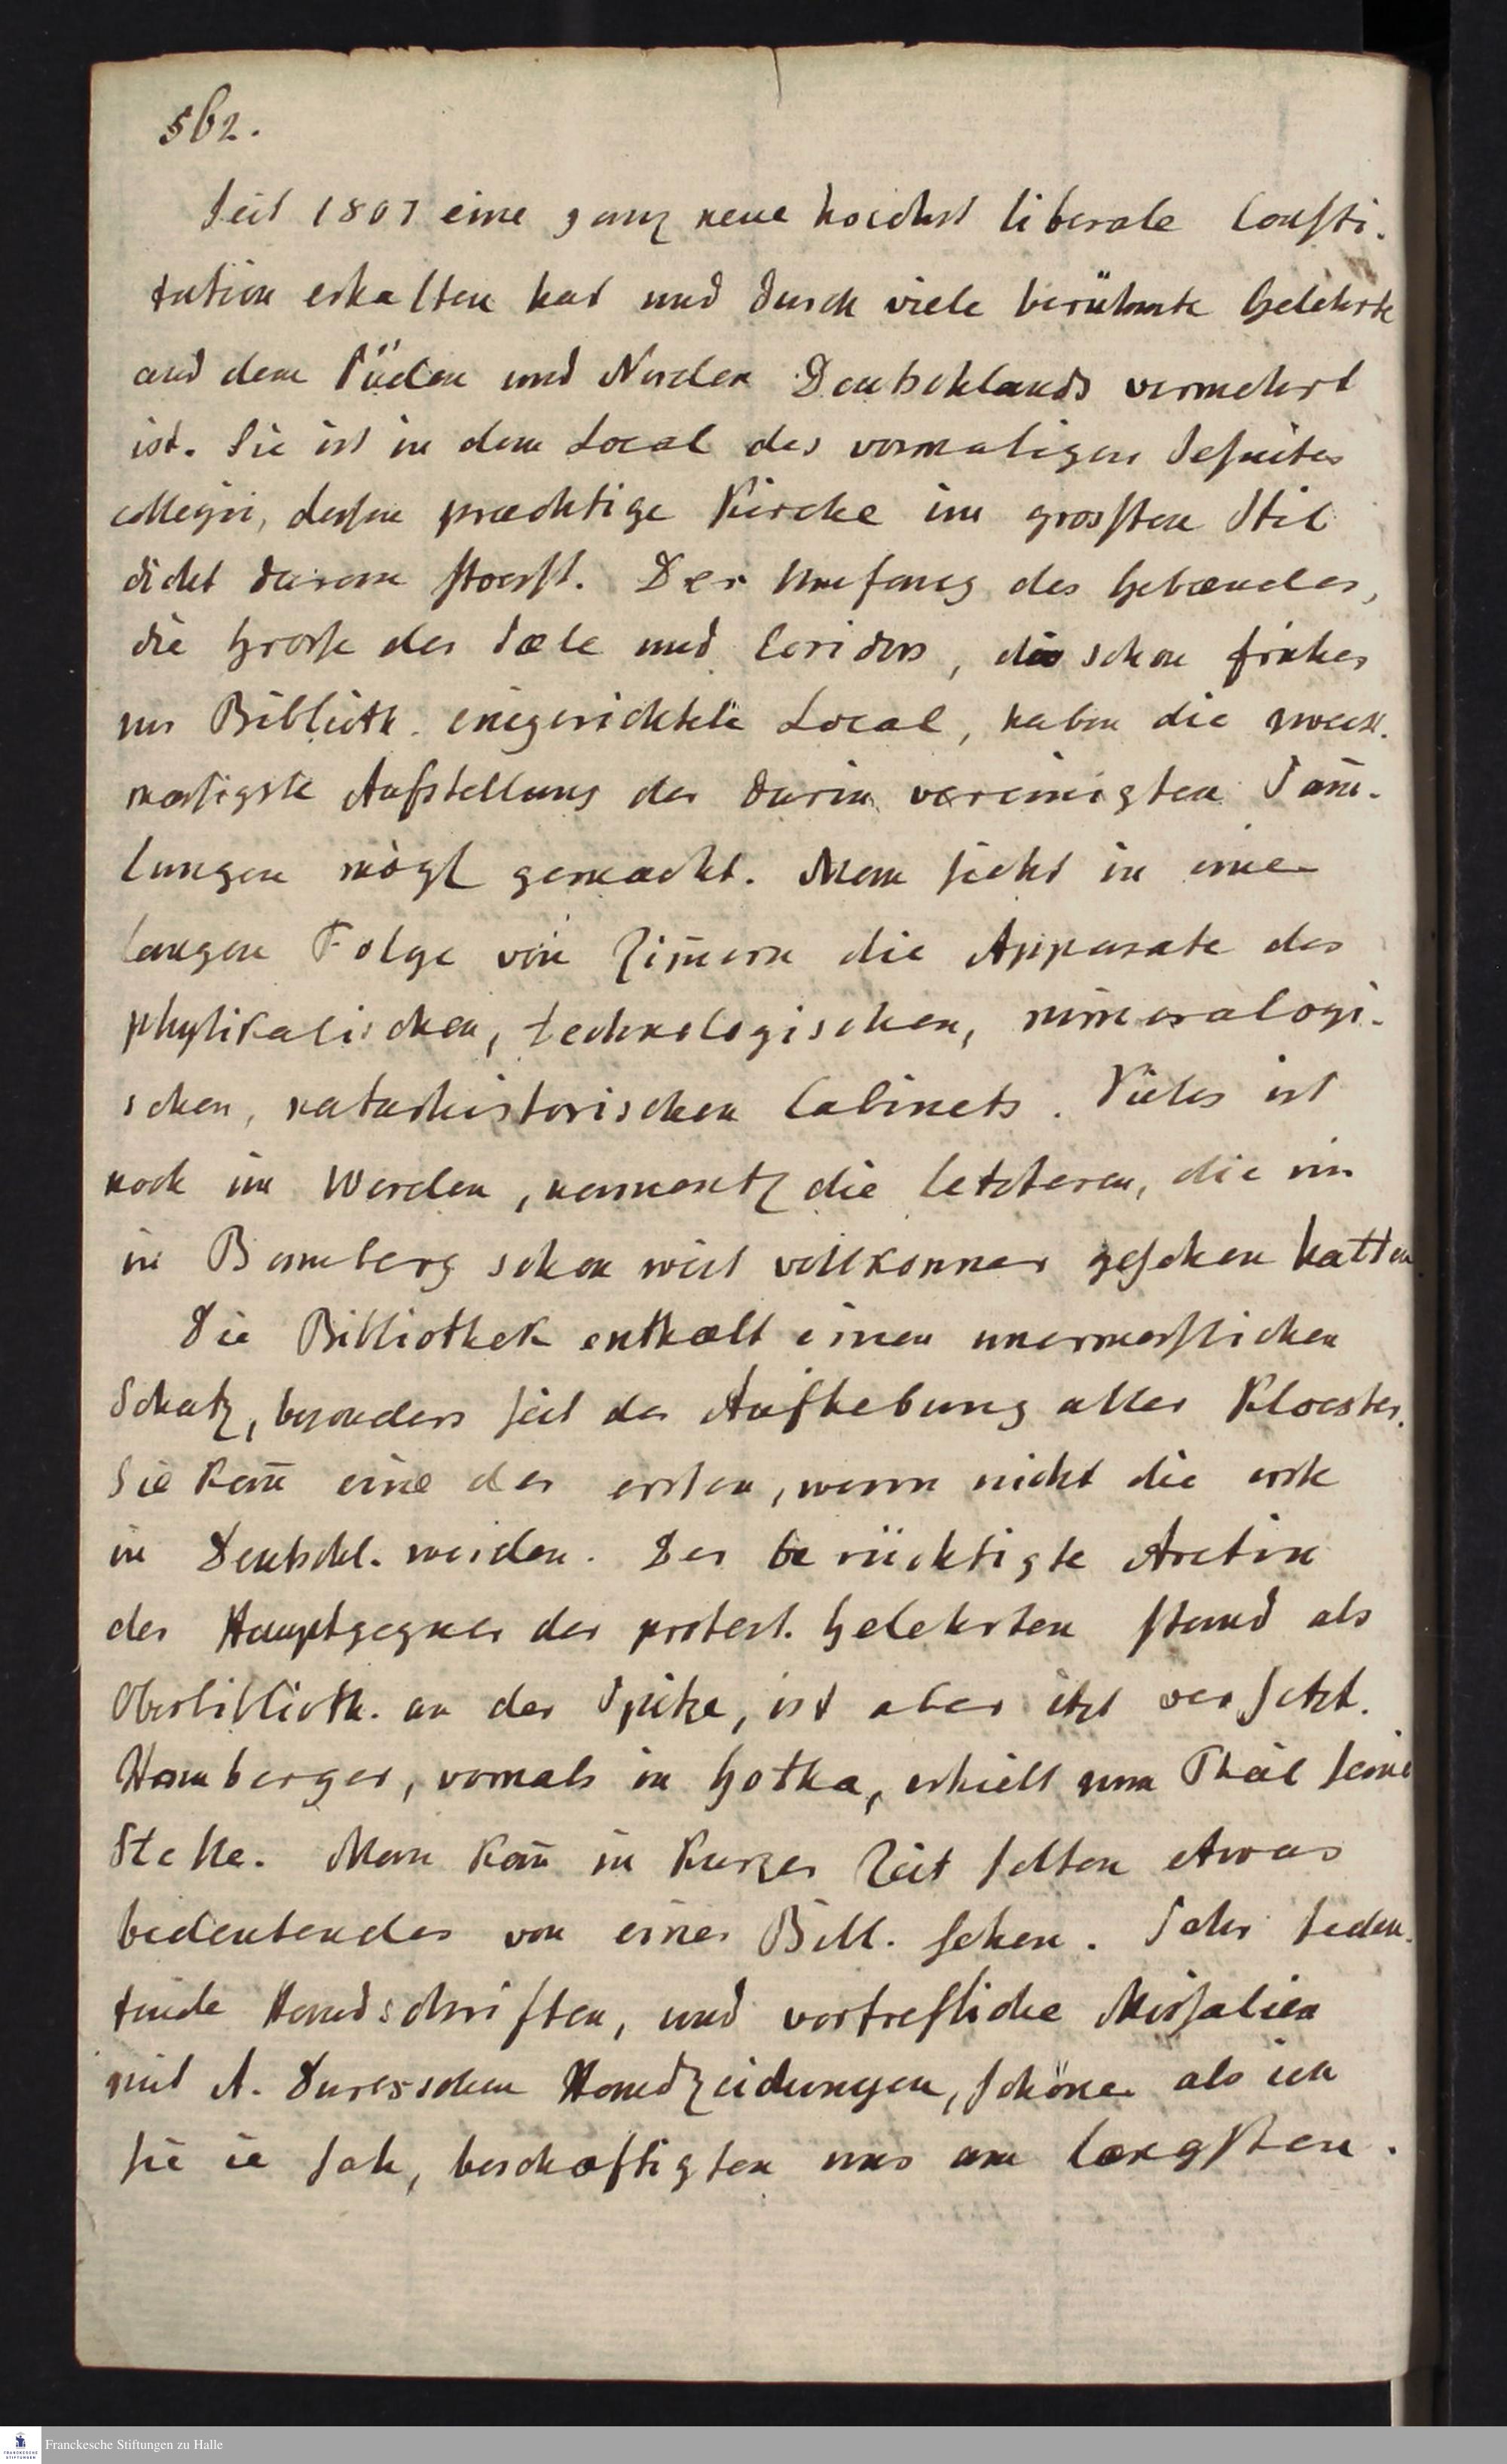 562.
Seit 1807 eine ganz neue hoechst liberale Consti-
tution erhalten hat und durch viele berühmte Gelehrte
aus dem Süden und Norden Deutschlands vermehrt
ist. Sie ist in dem Local des vormaligen Jesuiter
collegii, dessen præchtige Kirche im grosften Stil
dicht daran stoesst. Der Umfang des Gebæudes,
die Grosse der Sæle und Coridors, die schon früher
zur Biblioth. eingerichtete Local, haben die zweck-
mæssigste Aufstellung der darin vereinigten Sam̄-
lungen mögl gemacht. Man sieht in einer
langen Folge von Zim̄ern die Apparate der
physikalischen, technologischen, mineralogi-
schen, naturhistorischen Cabinets. Vieles ist
noch im Werden, namentl die letzteren, die wir
in Bamberg schon weit vollkomner gesehen hatten
Die Bibliothek enthælt einen unermesslichen
Schatz, besonders seit der Aufhebung aller Kloester.
Sie kan̄ eine der ersten, wenn nicht die erste
in Deutschl. werden. Der berüchtigte Aretin
der Hauptgegner der protest. Gelehrten stand als
Oberbiblioth. an der Spitze, ist aber itzt versetzt.
Hamberger, vormals in Gotha, erhielt zum Theil seine
Stelle. Man kan̄ in kurzer Zeit selten etwas
bedeutendes von einer Bibl. sehen. Sehr bedeu-
tende Handschriften, und vortrefliche Missalien
mit A. Durerschen Handzeichnungen, schöner als ich
sie ie sah, beschæftigten uns am længsten.
Franckesche Stiftungen zu Halle